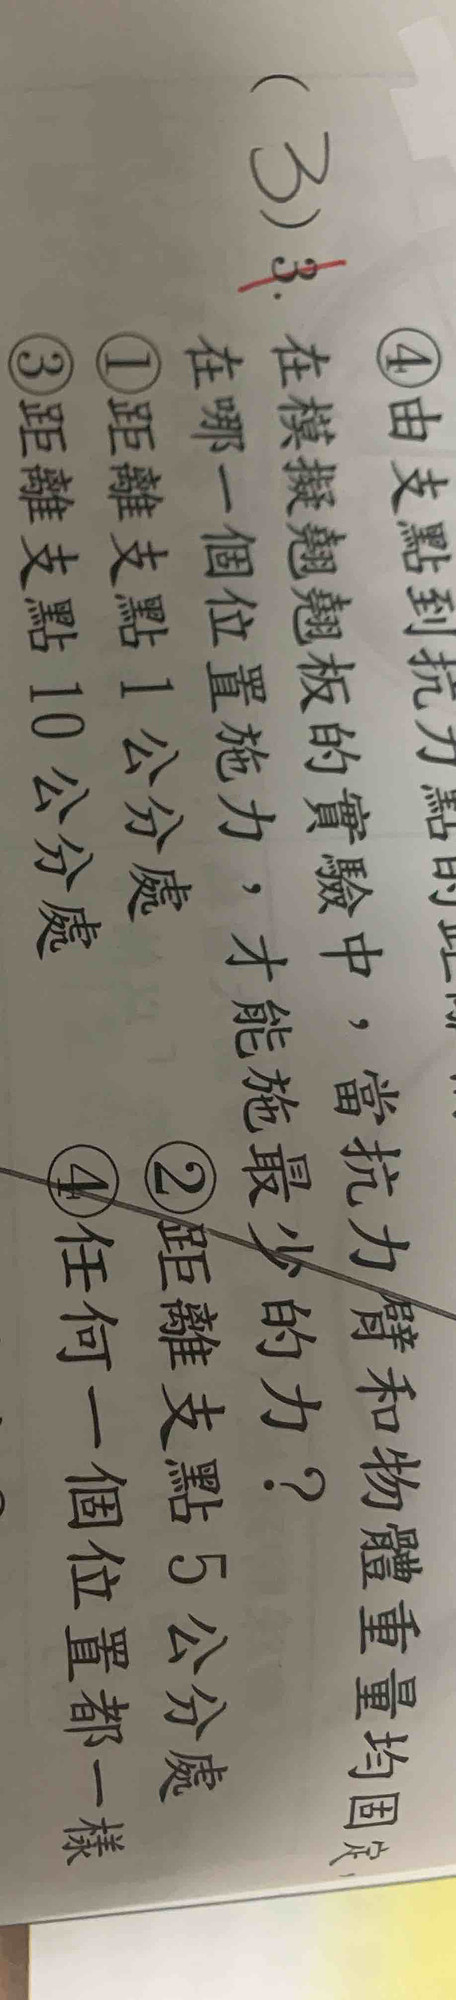 ④由支點到抗力點的距
(3)3. 在模擬翹翹板的實驗中，當抗力臂和物體重量均固定，
在哪一個位置施力，才能施最少的力？
①距離支點1公分處 ②距離支點5公分處
③距離支點10公分處 ④任何一個位置都一樣